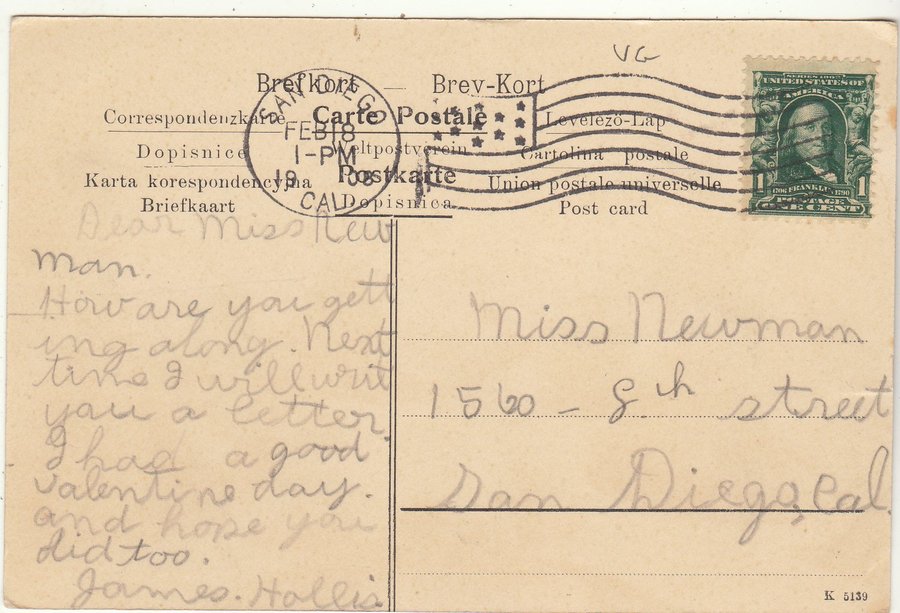 VG
Brefkort Brev-Kort
Correspondenzkarte Carte Postale Levelező-Lap
Dopisnice Weltpostverein Cartolina postale
Karta korespondencyjna Postkarte Union postale universelle
Briefkaart Dopisnica Post card
SAN DIEGO
FEB 18
1-PM
19 08
CAL
SERIES 1902
UNITED STATES OF
AMERICA
1706 FRANKLIN 1790
1 POSTAGE 1
ONE CENT
Dear Miss New
man.
How are you gett
ing along. Next
time I will writ
you a letter.
I had a good
valentine day.
and hope you
did too.
James. Hollis
Miss Newman
1560 - 8th street
San Diego, Cal.
K 5139